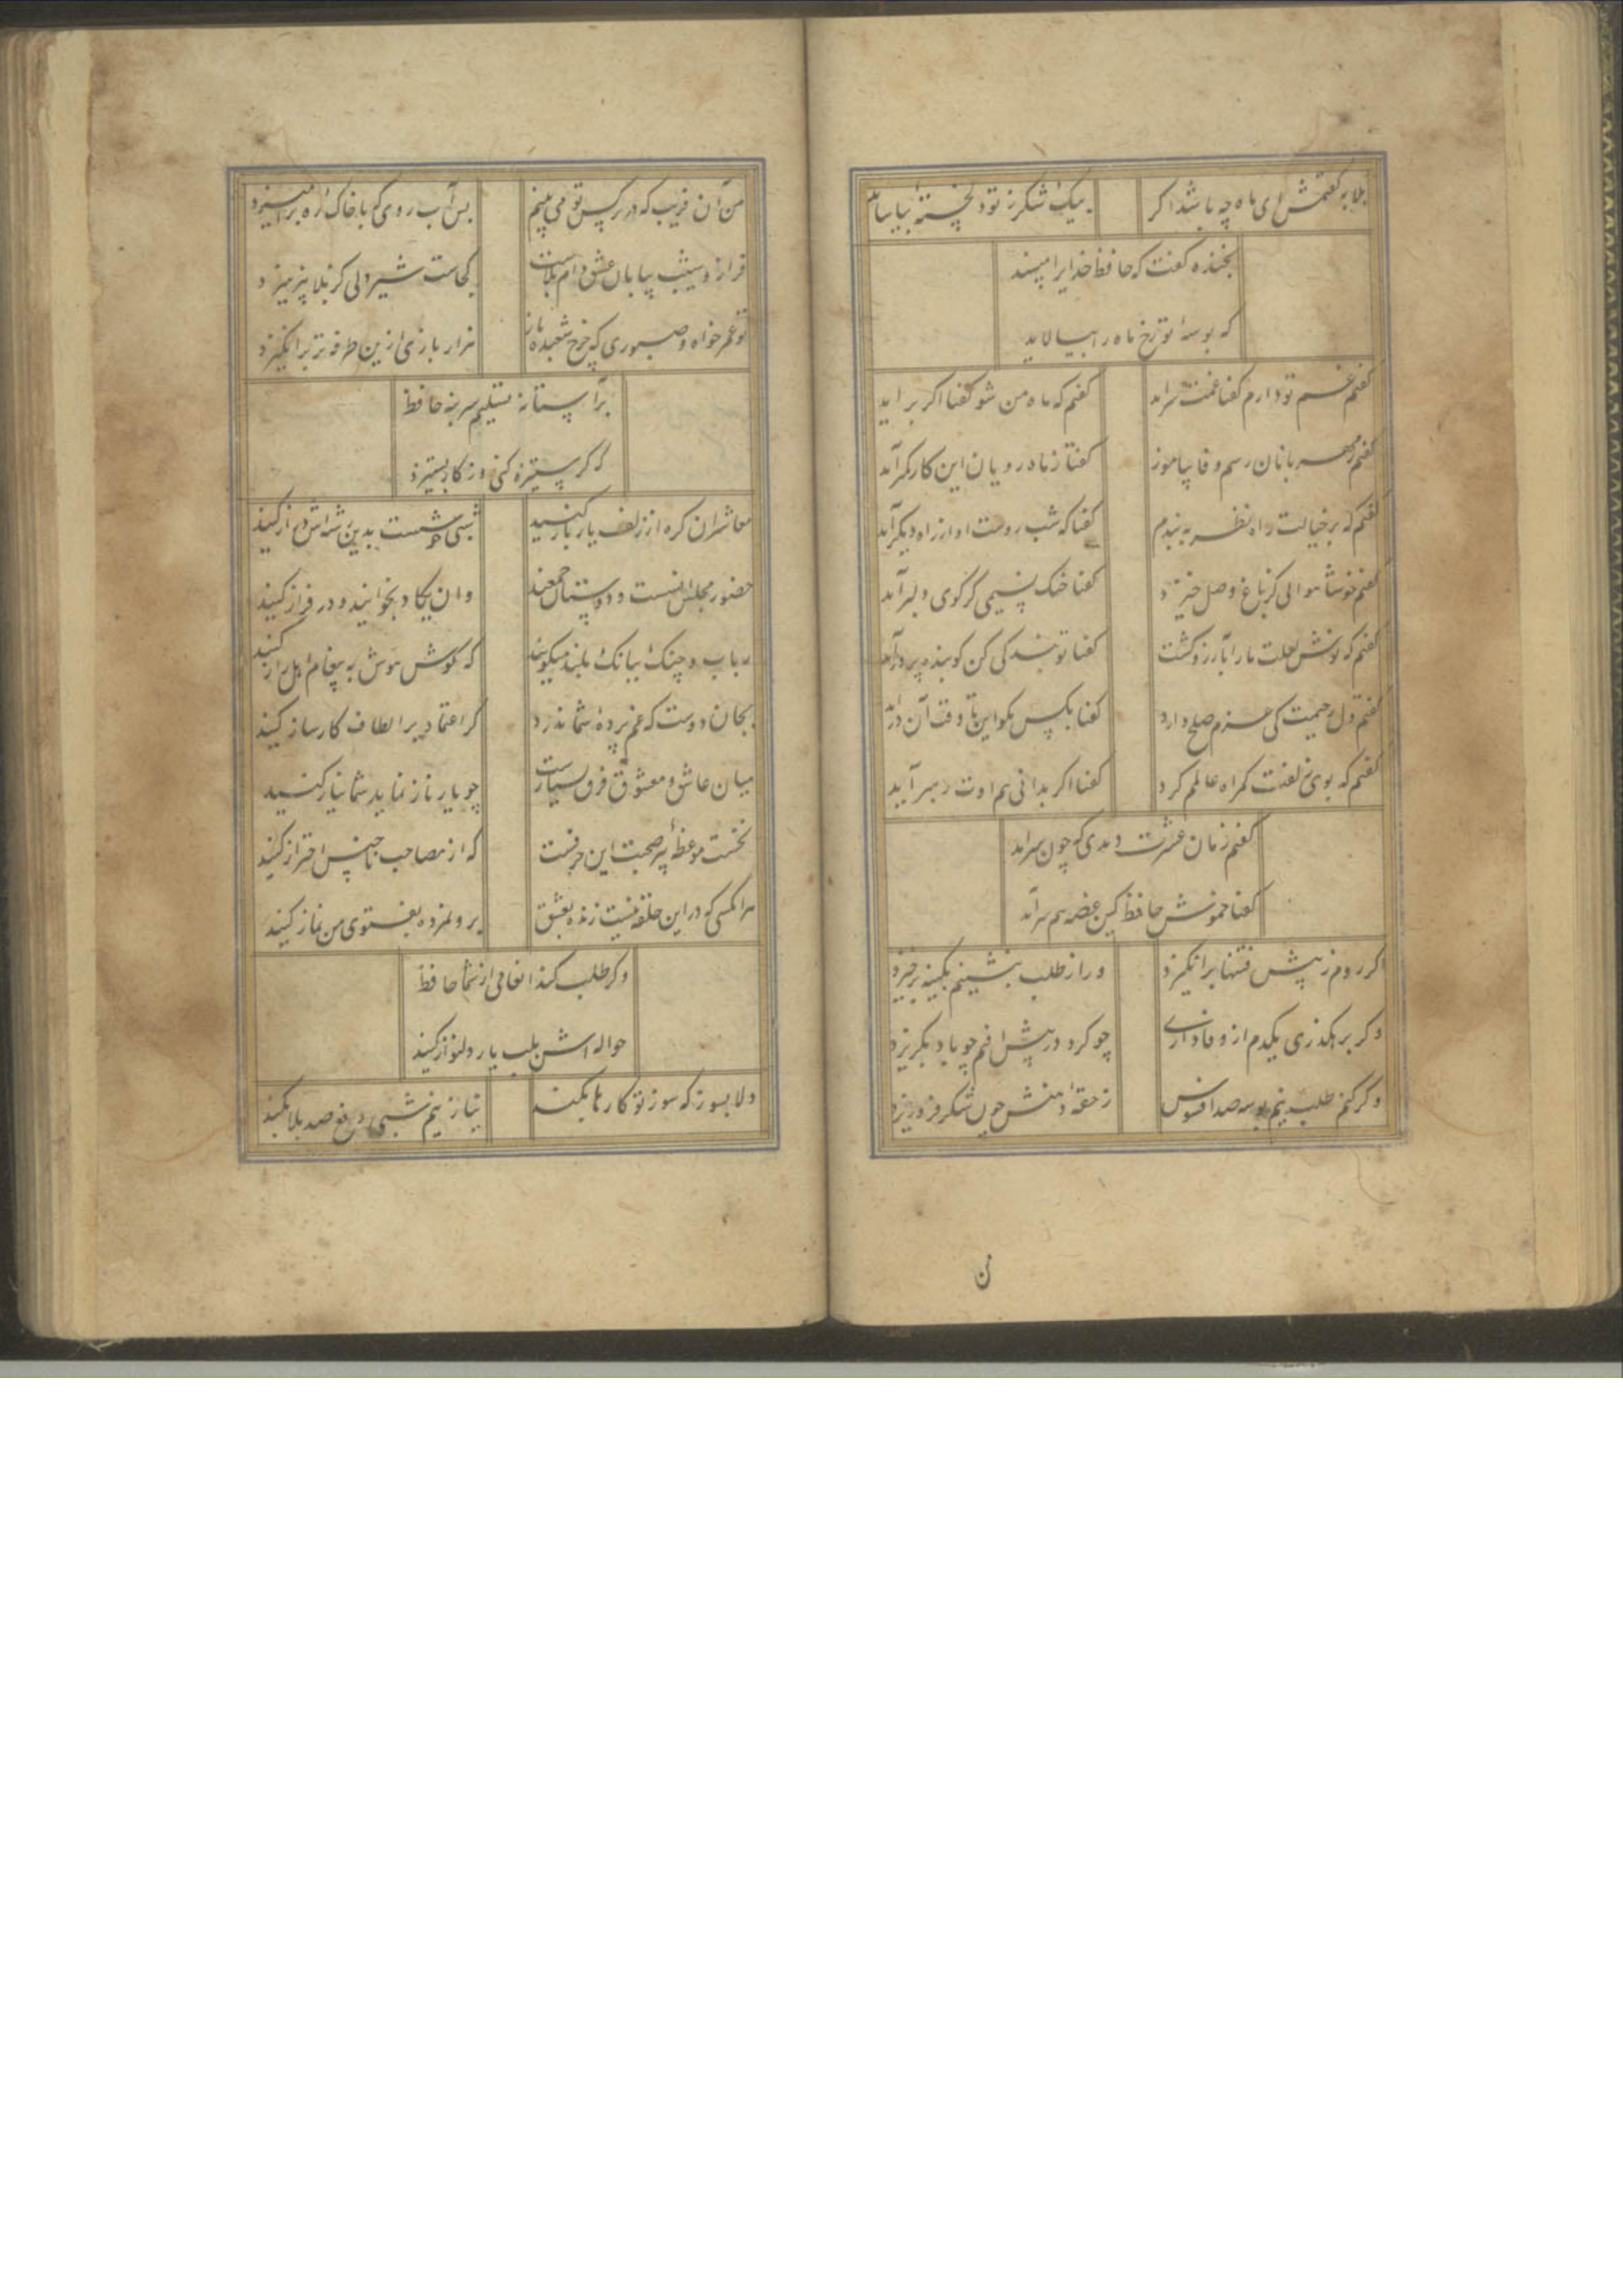 بلابه گفتمش ای ماه چه باشد اگر
بیک شکر ز تو دلخسته بیاساید
بخنده گفت که حافظ خدایرا مپسند
که بوسه تو رخ ماه را بیالاید
گفتم غم تو دارم گفتا غمت سراید
گفتم که ماه من شو گفتا اگر براید
گفتم ز مهربانان رسم وفا بیاموز
گفتا ز ماه رویان این کار کمر آید
گفتم که بر خیالت راه نظر به بندم
گفتا که شب روست او از راه دیگر آید
گفتم خوشا هوائی کز باغ وصل خیزد
گفتا خنک نسیمی کز کوی دلبر آید
گفتم که نوش لعلت ما را بآرزو کشت
گفتا تو بندگی کن کو بنده پرور آید
گفتم دل رحیمت کی عزم صلح دارد
گفتا بکس مگو این تا وقت آن دراید
گفتم که بوی زلفت گمراه عالمم کرد
گفتا اگر بدانی هم اوت رهبر آید
گفتم زمان عشرت دیدی که چون سراید
گفتا خموش حافظ کین غصه هم سرآید
اگر روم ز پیش فتنها برانگیزد
ور از طلب بنشینم بکینه برخیزد
وگر برهگذری یکدم از وفاداری
چو گرد در پیش افتم چو باد بگریزد
وگر کنم طلب نیم بوسه صد افسوس
ز حقه دهنش چون شکر فرو ریزد
ن
من آن فریب که در نرگس تو می بینم
بس آب روی که با خاک ره برامیزد
فراز و شیب بیابان عشق دام بلاست
کجاست شیردلی کز بلا نپرهیزد
تو عمر خواه و صبوری که چرخ شعبده باز
هزار بازی ازین طرفه تر برانگیزد
بر آستانه تسلیم سر بنه حافظ
که گر ستیزه کنی روزگار بستیزد
معاشران گره از زلف یار باز کنید
شبی خوشست بدین قصه اش دراز کنید
حضور مجلس انسست و دوستان جمعند
وان یکاد بخوانید و در فراز کنید
رباب و چنگ ببانگ بلند میگویند
که گوش هوش به پیغام اهل راز کنید
بجان دوست که غم پرده شما ندرد
گر اعتماد بر الطاف کارساز کنید
میان عاشق و معشوق فرق بسیارست
چو یار ناز نماید شما نیاز کنید
نخست موعظه پیر صحبت این حرفست
که از مصاحب ناجنس احتراز کنید
هر آنکسی که در این حلقه نیست زنده بعشق
برو نمرده بفتوی من نماز کنید
وگر طلب کند انعامی از شما حافظ
حواله اش بلب یار دلنواز کنید
دلا بسوز که سوز تو کارها بکند
نیاز نیم شبی دفع صد بلا بکند